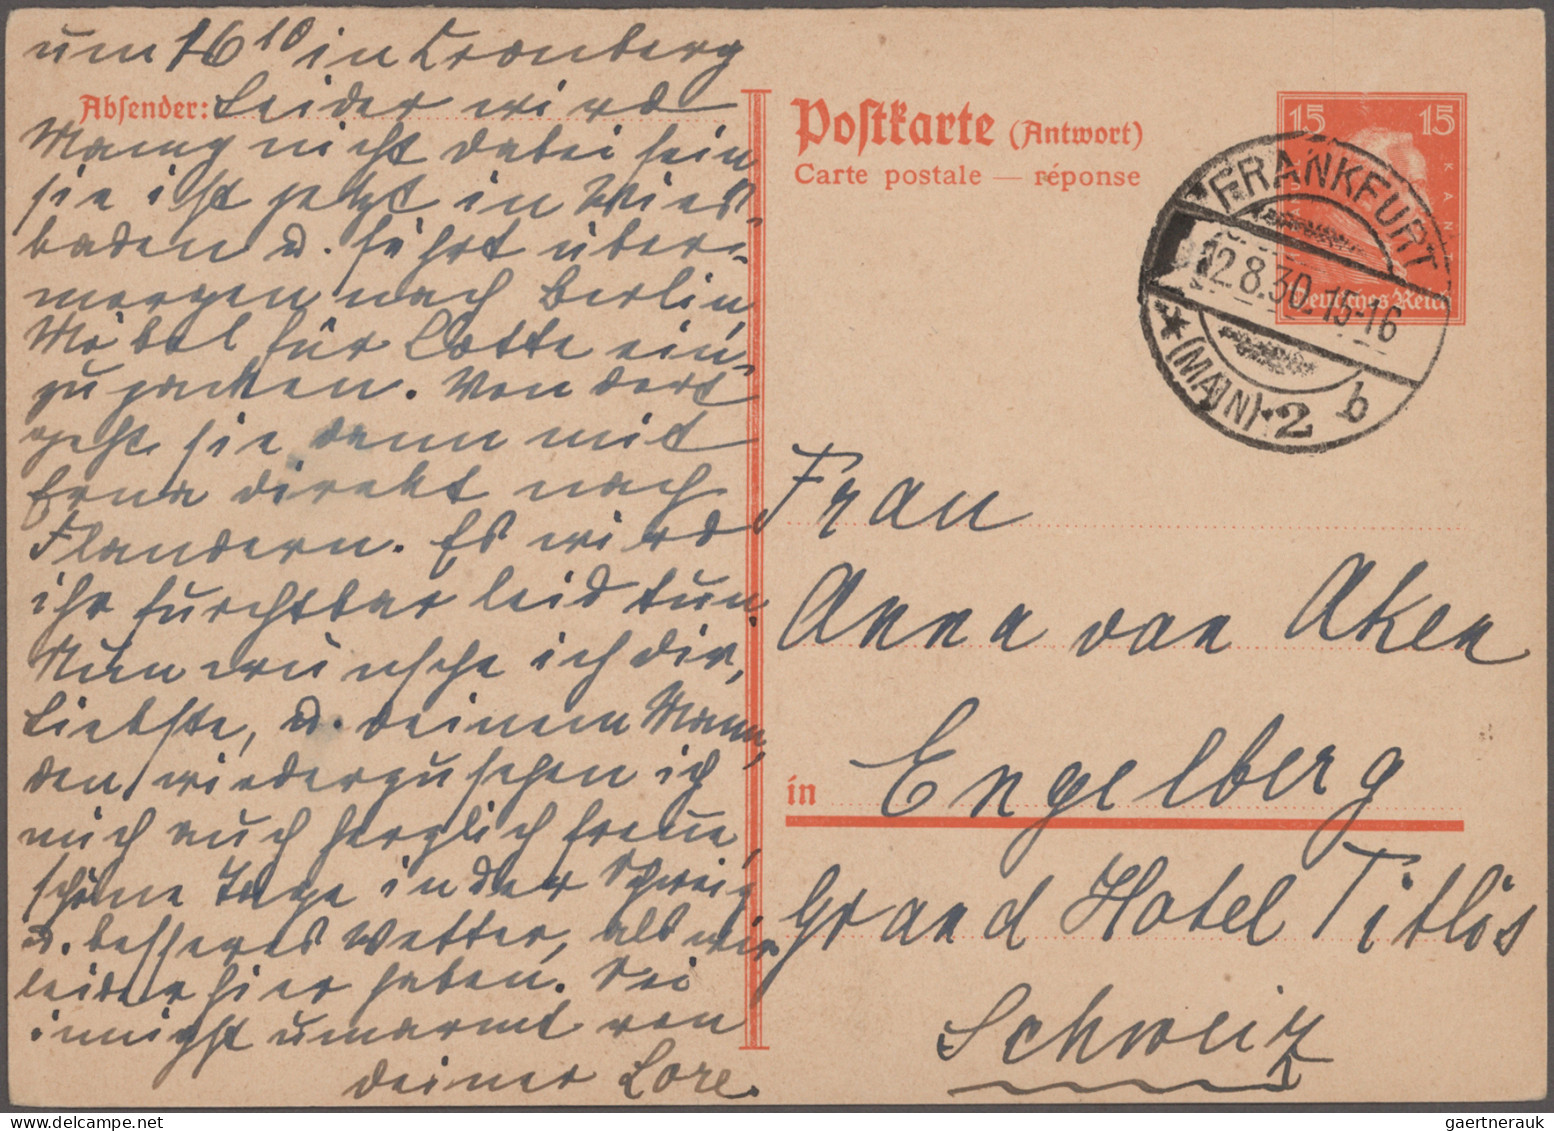 um 16 10 in Cronberg
Absender: Leider wird
Mamy nicht dabei sein,
sie ist jetzt in Wies-
baden u. fährt über-
morgen nach Berlin,
Möbel für Lotte ein-
zupacken. Von dort
geht sie dann mit
Erna direkt nach
Flandern. Es wird
ihr furchtbar leid tun.
Nun wünsche ich dir,
Liebste, u. deinem Mann,
den wiederzusehen ich
mich auch herzlich freue,
schöne Tage in der Schweiz
u. besseres Wetter, als wir
leider hier haben. Sei
innigst umarmt von
deiner Lore.
Postkarte (Antwort)
Carte postale — réponse
15 15
KANT
Deutsches Reich
FRANKFURT
12.8.30.15-16
* (MAIN) * 2 b
Frau
Anna van Aken
in Engelberg
Grand Hotel Titlis
Schweiz
gaertnerauk